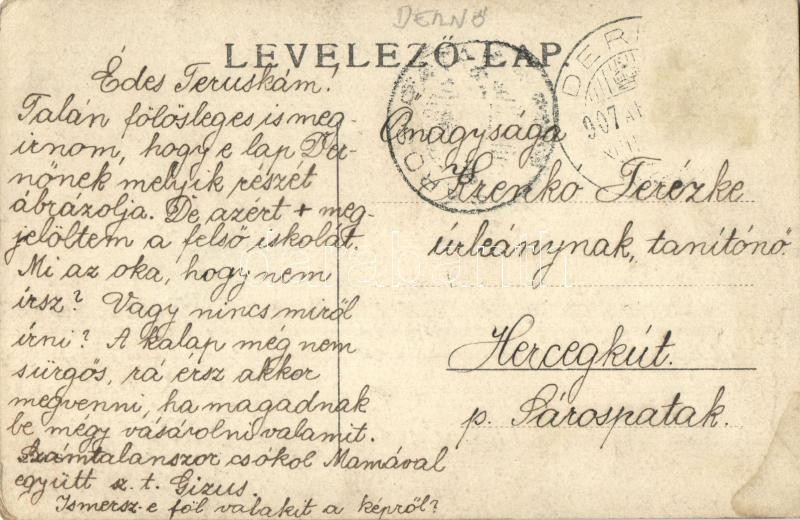 DERNŐ
LEVELEZŐ-LAP.
Édes Teruskám!
Talán fölösleges is meg-
irnom, hogy e lap Der-
nőnek melyik részét
ábrázolja. De azért + meg-
jelöltem a felső iskolát.
Mi az oka, hogy nem
irsz? Vagy nincs miről
írni? A kalap még nem
sürgős, rá érsz akkor
megvenni, ha magadnak
be mégy vásárolni valamit.
Számtalanszor csókol Mamával
együtt sz. t. Gizus.
Ismersz-e föl valakit a képről?
Őnagysága
Krenko Terézke
úrleánynak, tanítónő.
Hercegkút.
p. Sárospatak.
907
darabanth